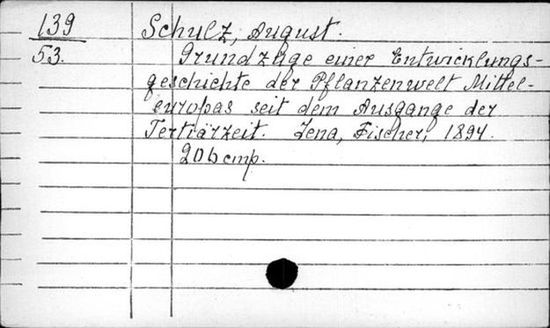 139 Schulz, August.
53. Grundzüge einer Entwicklungs-
geschichte der Pflanzenwelt Mittel-
europas seit dem Ausgange der
Tertiärzeit. Jena, Fischer, 1894.
206 cmp.